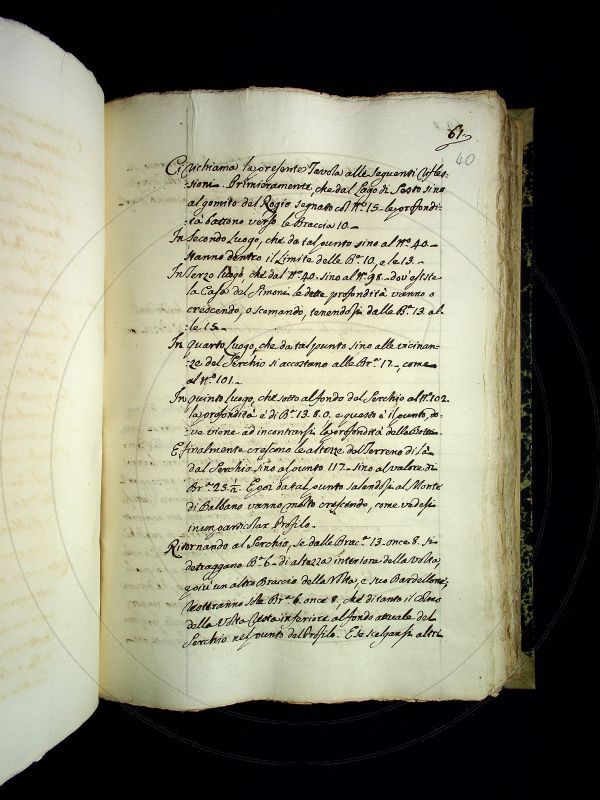 61.
40
Ci richiama la presente Tavola alle seguenti rifles-
sioni. Primieramente, che dal Lago di Sesto sino
al gomito del Rogio segnato col N.º 15. le profondi-
tà battono verso le Braccia 10.
In Secondo Luogo, che da tal punto sino al N.º 40.
stanno dentro il Limite delle B.ª 10, e le 13.
In Terzo luogo che dal N.º 40. sino al N.º 98. dov'esiste
la Casa del Simoni le dette profondità vanno o
crescendo, o scemando, tenendosi dalle B.ª 13. al-
le 15.
In quarto Luogo, che da tal punto sino alle vicinan-
ze del Serchio si accostano alle Br.ª 17. come
al N.º 101.
In quinto Luogo, che sotto al fondo del Serchio al N.º 102.
la profondità è di B.ª 13. 8. 0. e questo è il punto, do-
ve viene ad incontrarsi la profondità della Botte.
E finalmente crescono le altezze del Terreno di là
dal Serchio sino al punto 117. sino al valore di
Br.ª 25 ½. E poi da tal punto salendosi al Monte
di Balbano vanno molto crescendo, come vedesi
in un particolar Profilo.
Ritornando al Serchio, se dalle Brac.ª 13. once 8. si
detraggano B.ª 6. di altezza interiore della Volta,
più un altro Braccio della Volta, e suo Bardellone,
resteranno sole Br.ª 6. once 8. che di tanto il
della Volta resta inferiore al fondo attuale del
Serchio nel punto del Profilo. E se scelgansi altri